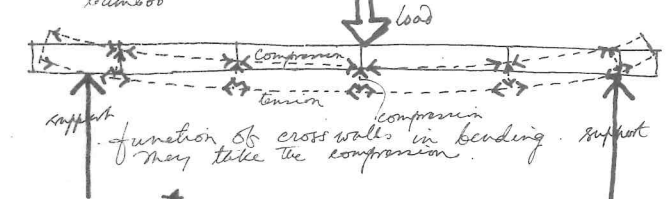 bamboo
load
compression
tension
compression
support
function of cross walls in bending. support
They take the compression.